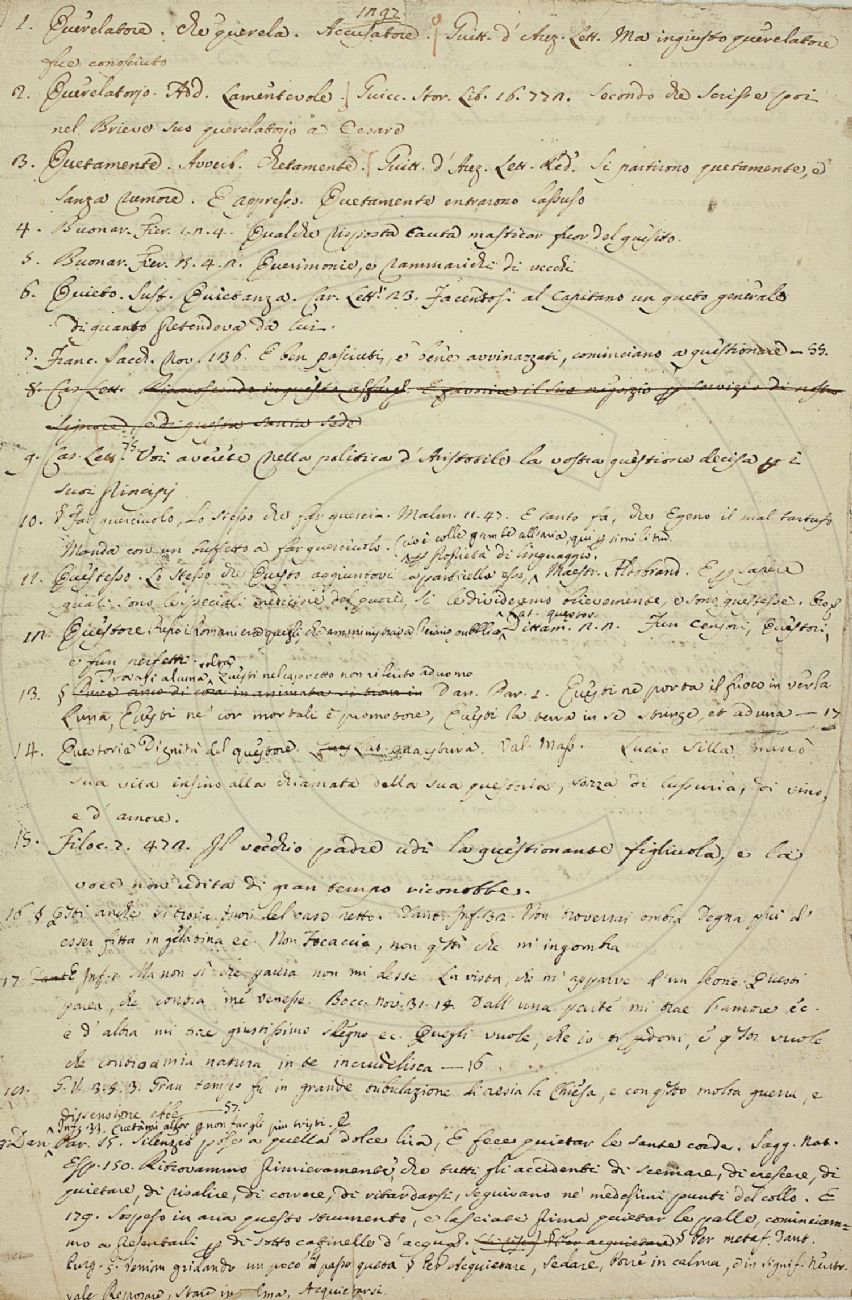 1. Querelatore. Che querela. Accusatore. Guitt. d'Arez. Lett. Ma ingiusto querelatore
fue conosciuto
2. Querelatorio. Add. Lamentevole Guicc. Stor. Lib. 16. 772. Secondo che scrisse poi
nel Brieve suo querelatorio a Cesare
3. Quetamente. Avverb. Chetamente. Guitt. d'Arez. Lett. Red. Si partirono quetamente, e
sanza rumore. E appresso. Quetamente entrarono lassuso
4. Buonar. Fier. 1. 2. 4. Qualche risposta cauta masticar fuor del quesito.
5. Buonar. Fier. 4. 2. Querimonie, e rammarichi di vecchi
6. Quieto. Sust. Quietanza. Car. Lett. 23. Facentosi al Capitano un queto generale
di quanto pretendeva da lui.
7. Franc. Sacch. Nov. 136. E ben pasciuti, e bene avvinazzati, cominciano a questionare — 55.
8. Car. Lett. il suo negozio servizio di nostro
Signore, e di questa santa sede
9. Car. Lett. 75 Voi averete nella politica d'Aristotile la vostra questione decisa i
suoi principj
10. § Far querciuolo, lo stesso che far quercia. Malm. 11. 47. E tanto fa, che Egeno il mal tartufo
Manda con un buffetto a far querciuolo. (cioè colle gambe all'aria per similitud.
proprietà di linguaggio.
11. Questesso. Lo stesso che Questo, aggiuntovi la particella esso, Maestr. Aldobrand. E sapere
quali sono le speciali medicine del quore, si le divideremo brievemente, e sono questesse.
12. Questore Presso i Romani era quegli che amministrava l'erario pubblico. Lat. questor. Dittam. 2. 2. Fun censori, Questori,
e fun perfetti.
13. § Trovasi alcuna volta Questi nel caso retto non riferito ad uomo
cosa inanimata si trova in Dan. Par. 1. Questi ne porta il fuoco in ver la
Luna, Questi ne' cor mortali è promotore, Questi la terra in se stringe, et aduna — 17
14. Questoria Dignità del questore. Lat. quaestura. Val. Mass. Lucio Silla menò
sua vita insino alla chiamata della sua questoria, sozza di lussuria, di vino,
e d'amore.
15. Filoc. 7. 472. Il vecchio padre udì la questionante figliuola, e la
voce non udita di gran tempo riconobbe.
16 § Questi anche si trova fuori del caso retto. Dant. Inf. 32. Non troverrai ombra degna più d'
esser fitta in gelatina ec. Non Focaccia, non questi che m'ingombra
17. Dant. Inf. 1. Ma non sì che paura non mi desse La vista, che m'apparve d'un leone. Questi
parea, che contra me venesse. Bocc. nov. 31. 14. Dall'una parte mi trae l'amore ec.
e d'altra mi trae giustissimo sdegno ec. Quegli vuole, che io ti perdoni, e questi vuole
che contro a mia natura in te incrudelisca — 16
G. V. 3. 5. 3. Gran tempo fu in grande tribulazione d'eresia la Chiesa, e con questo molta guerra, e
dissensione ebbe — 57.
Inf. 33. Quetami allor per non fargli più tristi. E
Dan. Par. 15. Silenzio pose a quella dolce lira, E fece quietar le sante corde. Sagg. Nat.
Esp. 150. Ritrovammo primieramente, che tutti gli accidenti di scemare, di crescere, di
quietare, di risalire, di correre, di ritardarsi, seguivano ne' medesimi punti del collo. E
179. Sospeso in aria questo strumento, e lasciate prima quietar le palle, cominciam-
mo a presentarli di sotto catinelle d'acqua. § Per metaf. Dant.
Purg. 5. Venian gridando un poco il passo queta § Per Acquietare, Sedare, Porre in calma, e in signif. Neutr.
vale Riposare, Stare in calma, Acquietarsi.